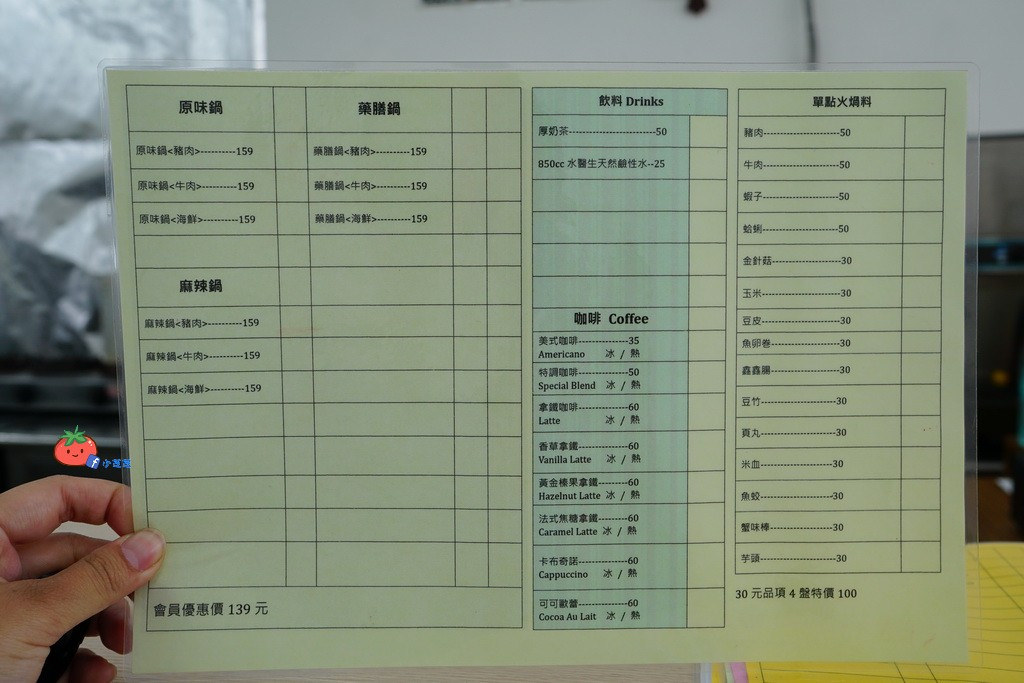 原味鍋
原味鍋<豬肉>----------159
原味鍋<牛肉>----------159
原味鍋<海鮮>----------159
麻辣鍋
麻辣鍋<豬肉>----------159
麻辣鍋<牛肉>----------159
麻辣鍋<海鮮>----------159
會員優惠價 139 元
藥膳鍋
藥膳鍋<豬肉>----------159
藥膳鍋<牛肉>----------159
藥膳鍋<海鮮>----------159
飲料 Drinks
厚奶茶------------------------50
850cc 水醫生天然鹼性水--25
咖啡 Coffee
美式咖啡--------------35
Americano 冰 / 熱
特調咖啡--------------50
Special Blend 冰 / 熱
拿鐵咖啡--------------60
Latte 冰 / 熱
香草拿鐵--------------60
Vanilla Latte 冰 / 熱
黃金榛果拿鐵--------60
Hazelnut Latte 冰 / 熱
法式焦糖拿鐵--------60
Caramel Latte 冰 / 熱
卡布奇諾--------------60
Cappuccino 冰 / 熱
可可歐蕾--------------60
Cocoa Au Lait 冰 / 熱
單點火鍋料
豬肉----------------------50
牛肉----------------------50
蝦子----------------------50
蛤蜊----------------------50
金針菇--------------------30
玉米----------------------30
豆皮----------------------30
魚卵卷--------------------30
鑫鑫腸--------------------30
豆竹----------------------30
貢丸----------------------30
米血----------------------30
魚餃----------------------30
蟹味棒--------------------30
芋頭----------------------30
30 元品項 4 盤特價 100
小芝芝